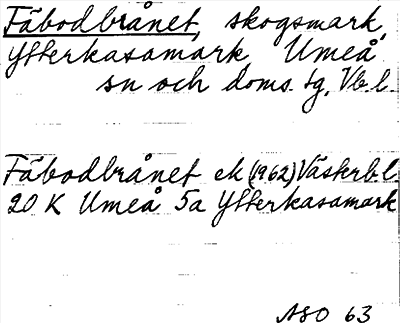 Fäbodbrånet, skogsmark,
Ytterkasamark Umeå
sn och doms. tg, Vb. l.
Fäbodbrånet ek (1962) Västerb. l.
20 K Umeå 5a Ytterkasamark
ASO 63